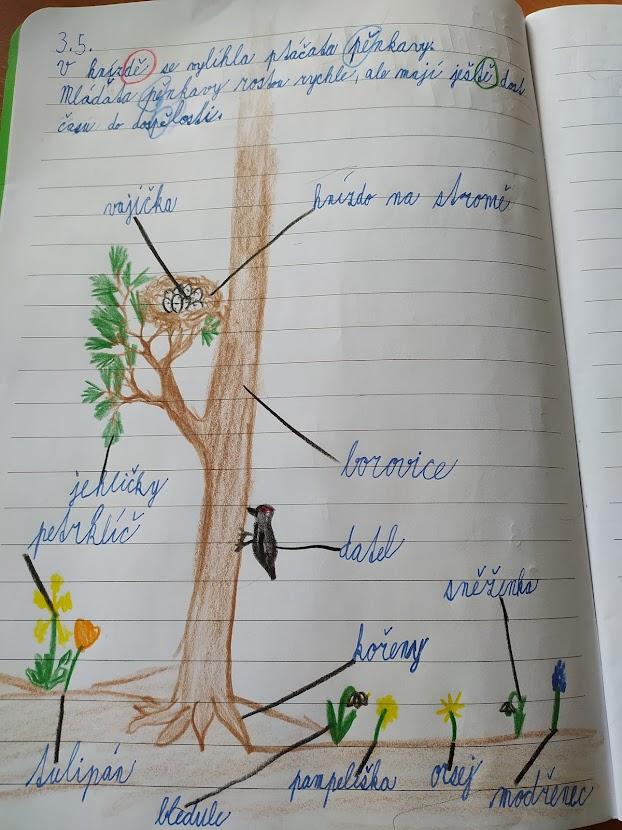 3.5.
V hnízdě se vylíhla ptáčata pěnkavy.
Mláďata pěnkavy rostou rychle, ale mají ještě dost
času do dospělosti.
vajíčka
hnízdo na stromě
borovice
jehličky
petrklíč
datel
sněženka
kořeny
tulipán
bledule
pampeliška
orsej
modřenec